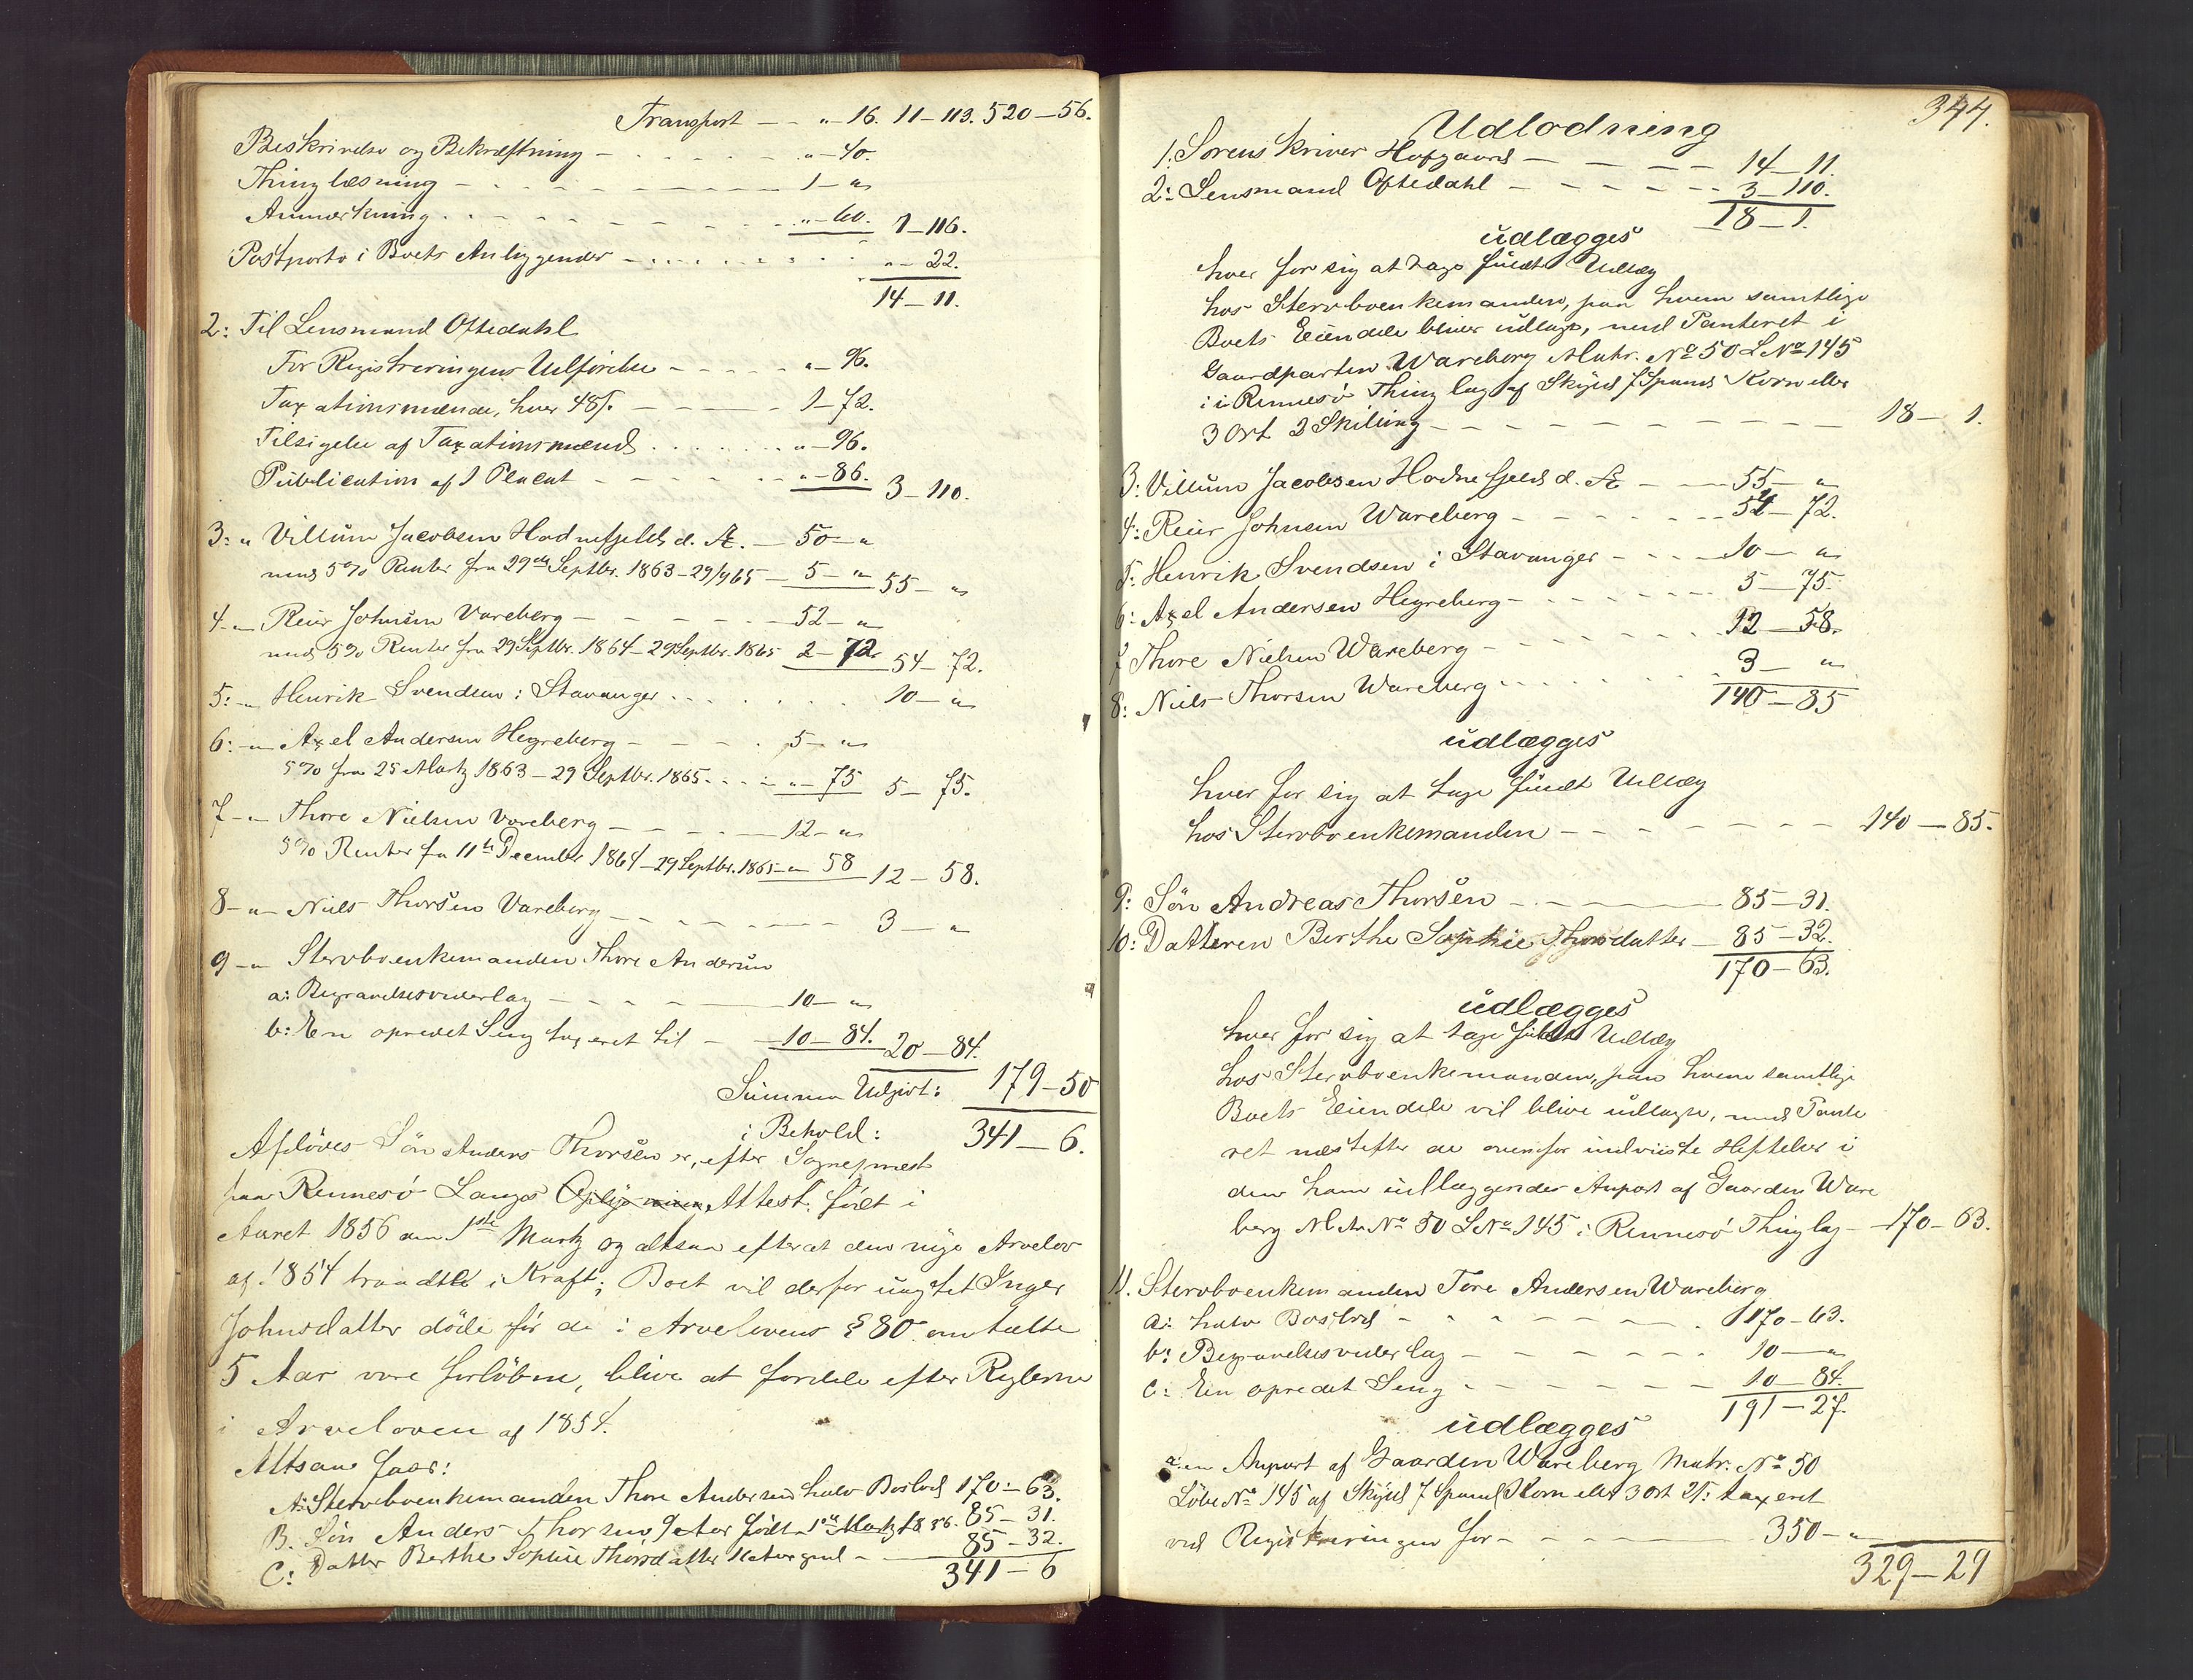 Transport — „ 16. 11 — 113. 520 — 56.
Beskrivelse og Bekræftning — „ — 40.
Thinglæsning — 1 — „
Anmærkning — „ — 60. 1 — 116.
Postporto i Boets Anliggender — „ — 22.
14 — 11.
2: Til Lensmand Oftedahl
For Registreringens Udførelse — „ — 96.
Taxationsmænde, hver 48 ß. — 1 — 72.
Tilsigelse af Taxationsmænd — „ — 96.
Publication af 1 Placat — „ — 86. 3 — 110.
3: „ Villum Jacobsen Hodnefjeld d. Æ. — 50 — „
med 5% Renter fra 29de Septbr. 1863 — 29/9 65 — 5 — „ 55 — „
4 — „ Reier Johnsen Vareberg — 52 — „
med 5% Renter fra 29 Septbr. 1864 — 29 Septbr. 1865 2 — 72. 54 — 72.
5: — „ Henrik Svendsen i Stavanger — 10 — „
6: — „ Axel Andersen Hegreberg — 5 — „
5% fra 25 Martz 1863 — 29 Septbr. 1865 — „ — 75 5 — 75.
7 — „ Thore Nielsen Vareberg — 12 — „
5% Renter fra 11te December 1864 — 29 Septbr. 1865 — „ 58 12 — 58.
8 — „ — Niels Thorsen Vareberg — 3 — „
9 — „ Stervboenkemanden Thore Andersen
a: Begravelsesvederlag — 10 — „
b: En opredet Seng taxeret til — 10 — 84. 20 — 84.
Summa Udgivt: 179 — 50
i Behold: 341 — 6.
Afdødes Søn Anders Thorsen er, efter Sognepræst
paa Rennesø Langes Attest, født i
Aaret 1856 den 1ste Martz og altsaa efterat den nye Arvelov
af 1854 traadte i Kraft; Boet vil derfor uagtet Inger
Johnsdatter døde før de i Arvelovens § 80 omtalte
5 Aar vare forløbne, blive at fordele efter Reglerne
i Arveloven af 1854.
Altsaa faar:
A: Stervboenkemanden Thore Andersen halv Boslod 170 — 63.
B. Søn Anders Thorsen 9 Aar født 1ste Martz 1856. 85 — 31.
C: Datter Berthe Sophie Thorsdatter 11 Aar gml — 85 — 32.
341 — 6
344.
Udlodning
1. Sorenskriver Hofgaard — 14 — 11.
2: Lensmand Oftedahl — 3 — 110.
18 — 1.
udlægges
hver for sig at tage fuldt Udlæg
hos Stervboenkemanden, paa hvem samtlige
Boets Eiendele bliver udlagt, med Panteret i
Gaardparten Wareberg Matr. No 50 L No 145
i Rennesø Thinglag af Skyld 7 Spand Korn eller
3 Ort 2 Skilling — 18 — 1.
3: Villum Jacobsen Hodnefjeld d. Æ — 55 — „
4: Reier Johnsen Wareberg — 54 — 72.
5: Henrik Svendsen i Stavanger — 10 — „
6: Axel Andersen Hegreberg — 5 — 75.
7 Thore Nielsen Wareberg — 12 — 58.
8: Niels Thorsen Wareberg — 3 — „
140 — 85
udlægges
hver for sig at tage fuldt Udlæg
hos Stervboenkemanden — 140 — 85.
9: Søn Andreas Thorsen — 85 — 31.
10: Datteren Berthe Sophie Thorsdatter — 85 — 32.
170 — 63.
udlægges
hver for sig at tage fuldt Udlæg
hos Stervboenkemanden, paa hvem samtlige
Boets Eiendele vil blive udlagte, med Pante
ret næstefter de ovenfor indviiste Heftelser i
den ham udlæggendes Anpart af Gaarden Ware
berg M Nr No 50 L No 145 i Rennesø Thinglag — 170 — 63.
11. Stervboenkemanden Tore Andersen Wareberg
a: halv Boslod — 170 — 63.
b: Begravelsesvederlag — 10 — „
c: Een opredet Seng — 10 — 84.
191 — 27.
udlægges
a: en Anpart af Gaarden Wareberg Matr. No 50
Løbe No 145 af Skyld 7 Spand Korn eller 3 Ort 2 ß: taxeret
ved Registreringen for — 350 — „
329 — 29